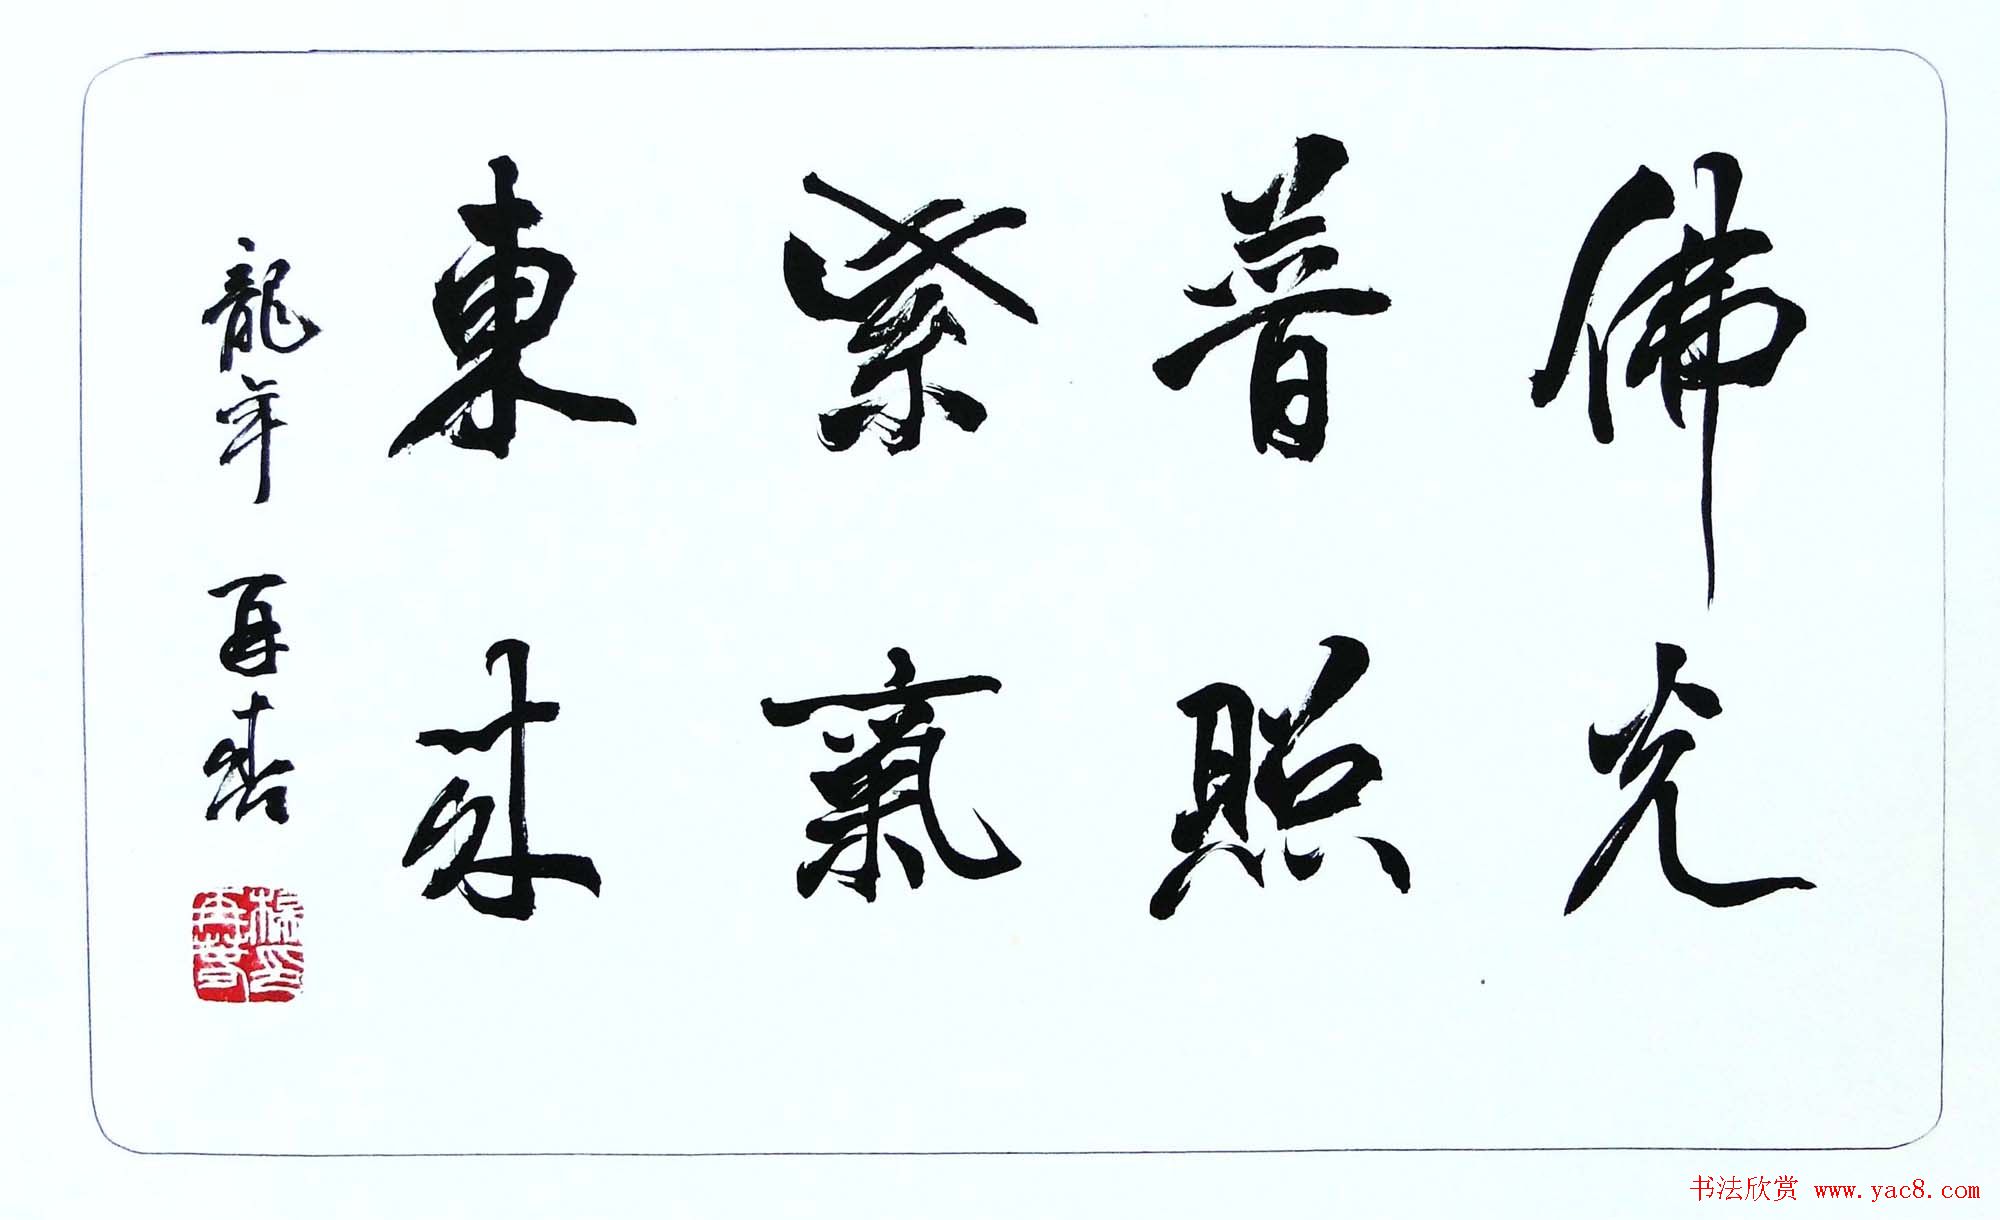 佛光
普照
紫氣
東来
龍年 再春
书法欣赏 www.yac8.com